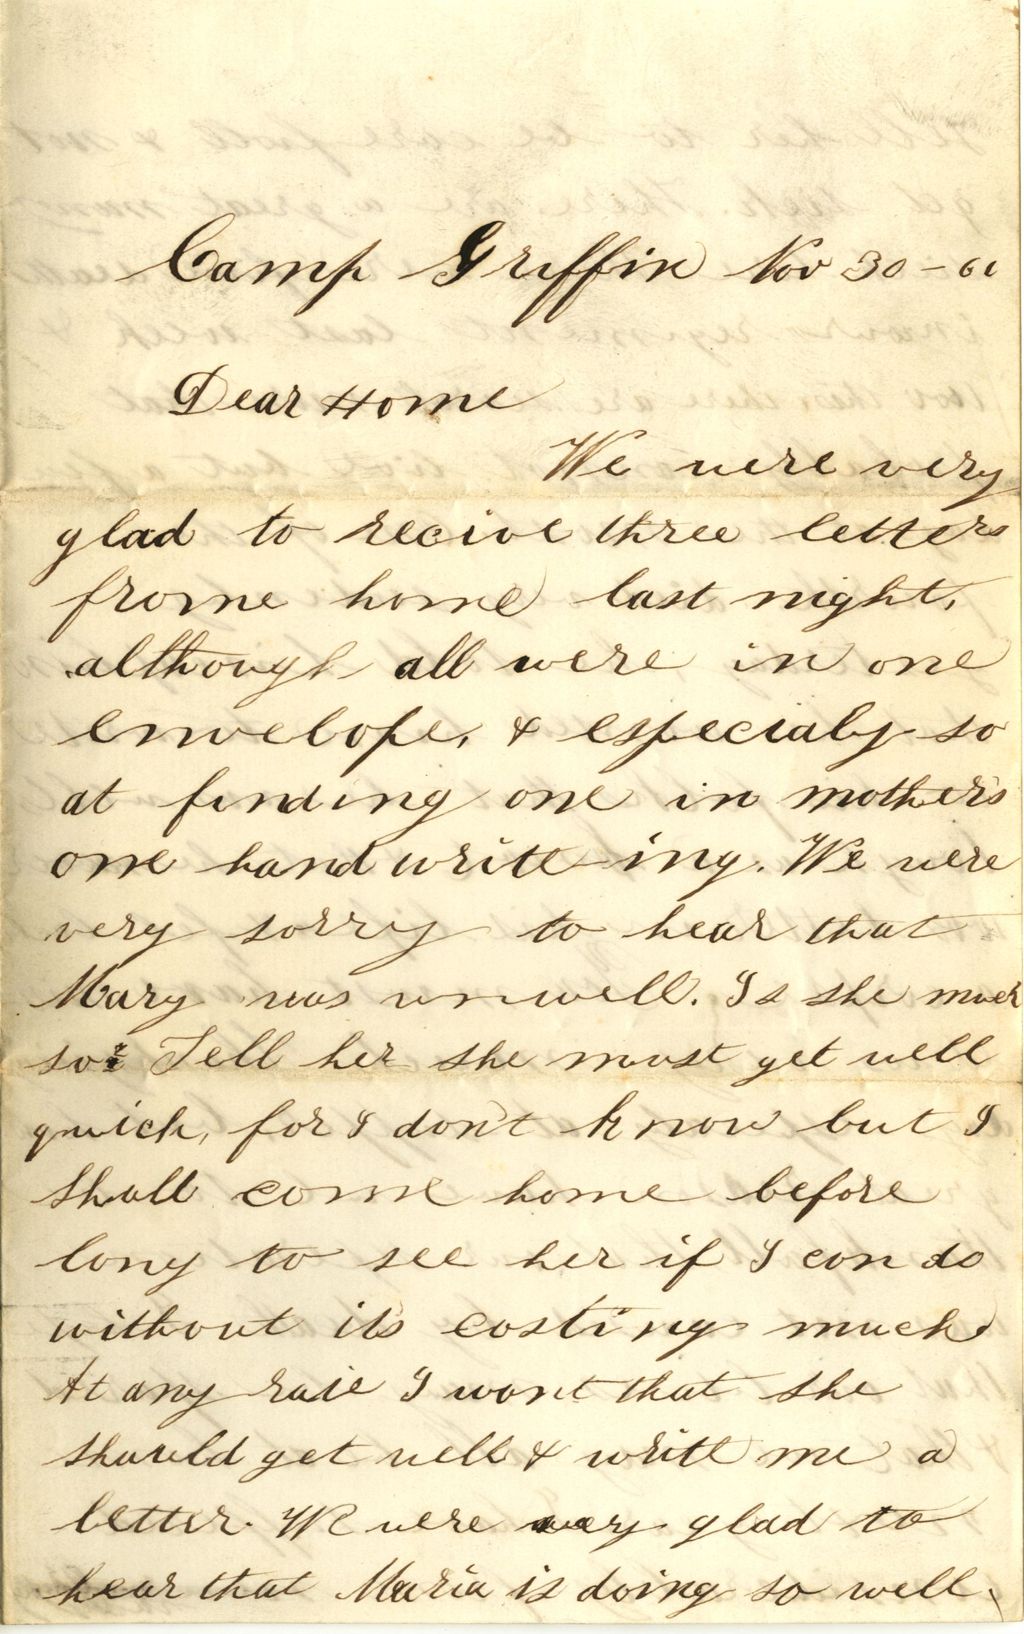 Camp Griffin Nov 30 - 61
Dear Home
We were very
glad to recive three letters
frome home last night,
although all were in one
envelope, & especialy so
at finding one in mothers
one hand writt-ing. We were
very sorry to hear that
Mary was unwell. Is she much
so? Tell her she must get well
quick, for I don't know but I
shall come home before
long to see her if I can do
without its costing much
At any rate I want that she
should get well & write me a
letter. We were very glad to
hear that Maria is doing so well.